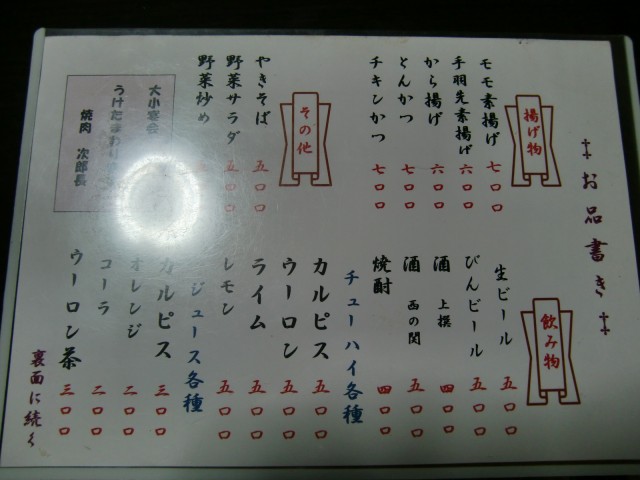 お品書き
揚げ物
モモ素揚げ 七〇〇
手羽先素揚げ 六〇〇
から揚げ 六〇〇
とんかつ 七〇〇
チキンかつ 七〇〇
その他
やきそば 五〇〇
野菜サラダ 五〇〇
野菜炒め
大小宴会
うけたまわり
焼肉 次郎長
飲み物
生ビール 五〇〇
びんビール 五〇〇
酒 上撰 四〇〇
酒 西の関 五〇〇
焼酎 四〇〇
チューハイ各種
カルピス 五〇〇
ウーロン 五〇〇
ライム 五〇〇
レモン 五〇〇
ジュース各種
カルピス 三〇〇
オレンジ 二〇〇
コーラ 二〇〇
ウーロン茶 三〇〇
裏面に続く